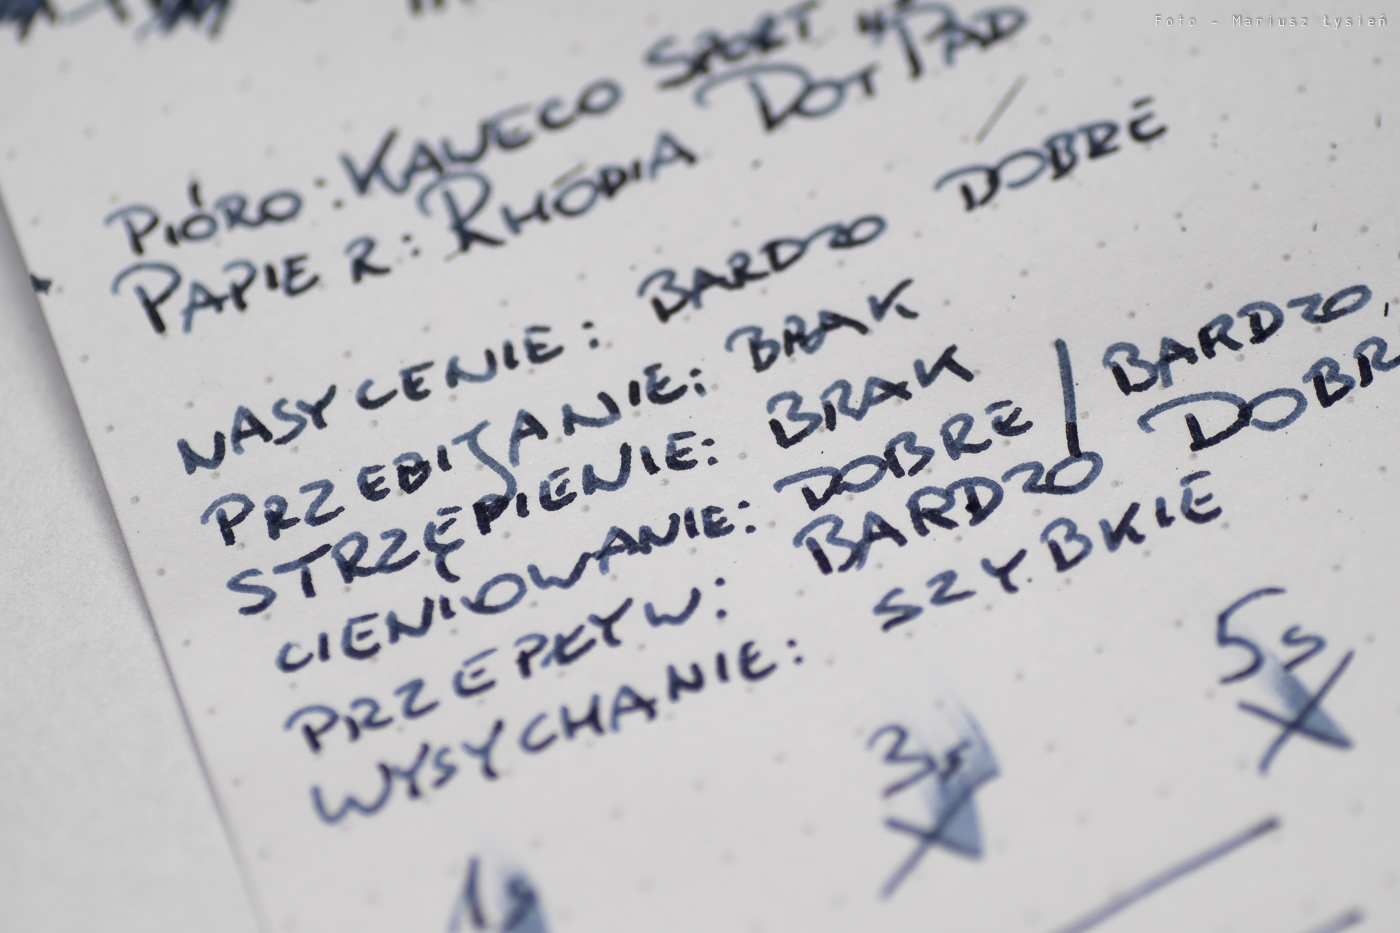 Foto - Mariusz Łysień
PIÓRO: KAWECO SPORT "F"
PAPIER: RHODIA DOT PAD
NASYCENIE: BARDZO DOBRE
PRZEBIJANIE: BRAK
STRZĘPIENIE: BRAK
CIENIOWANIE: DOBRE / BARDZO
PRZEPŁYW: BARDZO DOBR
WYSYCHANIE: SZYBKIE
1s 3s 5s